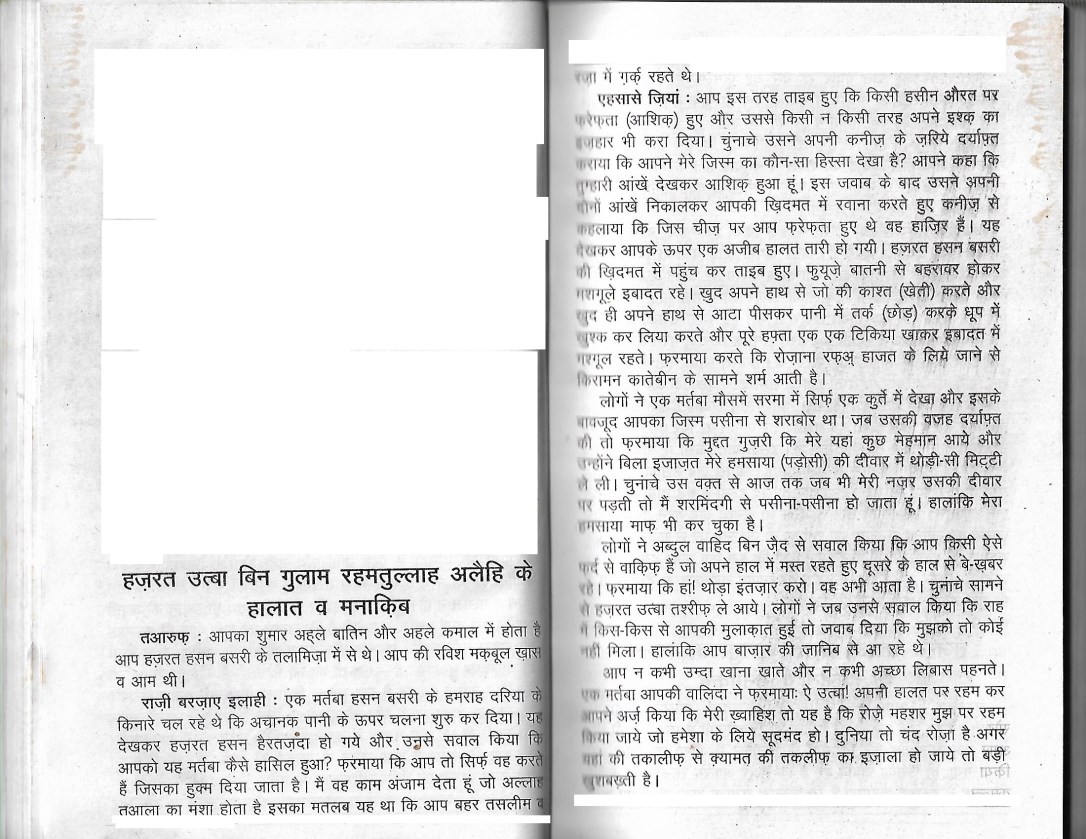 हज़रत उत्बा बिन गुलाम रहमतुल्लाह अलैहि के
हालात व मनाक़िब
तआरुफ़ : आपका शुमार अह्ले बातिन और अहले कमाल में होता है
आप हज़रत हसन बसरी के तलामिज़ा में से थे। आप की रविश मक़बूल ख़ास
व आम थी।
राज़ी बरज़ाए इलाही : एक मर्तबा हसन बसरी के हमराह दरिया के
किनारे चल रहे थे कि अचानक पानी के ऊपर चलना शुरु कर दिया। यह
देखकर हज़रत हसन हैरतज़दा हो गये और उनसे सवाल किया कि
आपको यह मर्तबा कैसे हासिल हुआ? फ़रमाया कि आप तो सिर्फ़ वह करते
हैं जिसका हुक्म दिया जाता है। मैं वह काम अंजाम देता हूं जो अल्लाह
तआला का मंशा होता है इसका मतलब यह था कि आप बहर तसलीम व
में ग़र्क़ रहते थे।
एहसासे ज़ियां : आप इस तरह ताइब हुए कि किसी हसीन औरत पर
फ़रेफ़ता (आशिक़) हुए और उससे किसी न किसी तरह अपने इश्क़ का
इज़हार भी करा दिया। चुंनाचे उसने अपनी कनीज़ के ज़रिये दर्याफ़्त
कराया कि आपने मेरे जिस्म का कौन-सा हिस्सा देखा है? आपने कहा कि
तुम्हारी आंखें देखकर आशिक़ हुआ हूं। इस जवाब के बाद उसने अपनी
दोनों आंखें निकालकर आपकी ख़िदमत में रवाना करते हुए कनीज़ से
कहलाया कि जिस चीज़ पर आप फ़रेफ़ता हुए थे वह हाज़िर हैं। यह
देखकर आपके ऊपर एक अजीब हालत तारी हो गयी। हज़रत हसन बसरी
की ख़िदमत में पहुंच कर ताइब हुए। फुयूज़े बातनी से बहरावर होकर
मशगूले इबादत रहे। ख़ुद अपने हाथ से जो की काश्त (खेती) करते और
ख़ुद ही अपने हाथ से आटा पीसकर पानी में तर्क (छोड़) करके धूप में
ख़ुश्क कर लिया करते और पूरे हफ़्ता एक एक टिकिया खाकर इबादत में
मशगूल रहते। फ़रमाया करते कि रोज़ाना रफ़अ् हाजत के लिये जाने से
किरामन कातेबीन के सामने शर्म आती है।
लोगों ने एक मर्तबा मौसमें सरमा में सिर्फ़ एक कुर्ते में देखा और इसके
बावजूद आपका जिस्म पसीना से शराबोर था। जब उसकी वजह दर्याफ़्त
की तो फ़रमाया कि मुद्दत गुज़री कि मेरे यहां कुछ मेहमान आये और
उन्होंने बिला इजाज़त मेरे हमसाया (पड़ोसी) की दीवार में थोड़ी-सी मिट्टी
ले ली। चुनांचे उस वक़्त से आज तक जब भी मेरी नज़र उसकी दीवार
पर पड़ती तो मैं शरमिंदगी से पसीना-पसीना हो जाता हूं। हालांकि मेरा
हमसाया माफ़ भी कर चुका है।
लोगों ने अब्दुल वाहिद बिन ज़ैद से सवाल किया कि आप किसी ऐसे
फ़र्द से वाक़िफ़ हैं जो अपने हाल में मस्त रहते हुए दूसरे के हाल से बे-ख़बर
रहे। फ़रमाया कि हां! थोड़ा इंतज़ार करो। वह अभी आता है। चुनांचे सामने
से हज़रत उत्बा तश्रीफ़ ले आये। लोगों ने जब उनसे सवाल किया कि राह
में किस-किस से आपकी मुलाक़ात हुई तो जवाब दिया कि मुझको तो कोई
नहीं मिला। हालांकि आप बाज़ार की जानिब से आ रहे थे।
आप न कभी उम्दा खाना खाते और न कभी अच्छा लिबास पहनते।
एक मर्तबा आपकी वालिदा ने फ़रमायाः ऐ उत्बा! अपनी हालत पर रहम कर
आपने अर्ज़ किया कि मेरी ख़्वाहिश तो यह है कि रोज़े महशर मुझ पर रहम
किया जाये जो हमेशा के लिये सूदमंद हो। दुनिया तो चंद रोज़ा है अगर
यहां की तकालीफ़ से क़्यामत की तकलीफ़ का इज़ाला हो जाये तो बड़ी
ख़ुशबख़्ती है।